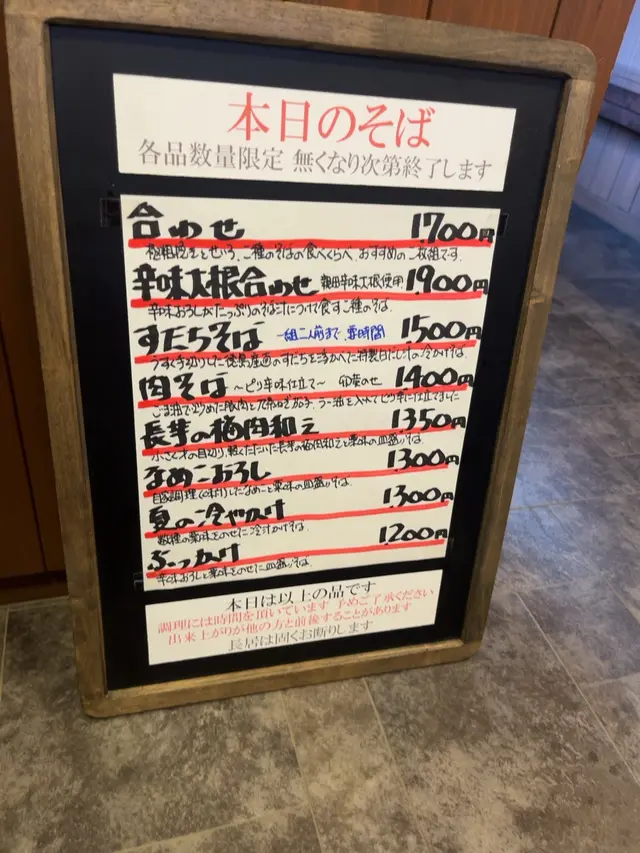 本日のそば
各品数量限定 無くなり次第終了します
合わせ 1700円
極粗挽きとせいろ、二種のそばの食べくらべ、おすすめの二枚組です。
辛味大根合わせ 親田辛味大根使用 1900円
辛味おろしがたっぷりのそば汁につけて食す二種のそば。
すだちそば 一組二人前まで 要時間 1500円
うすく手切りした徳島産のすだちを浮かべた特製白だしの冷かけそば。
肉そば 〜ピリ辛味仕立て〜 卵黄のせ 1400円
ごま油で炒めた豚肉と茄子、ラー油を入れてピリ辛に仕立てました
長芋の梅肉和え 1350円
小さく才の目切り、軽くたたいた長芋の梅肉和えと薬味の皿盛りそば。
なめこおろし 1300円
自家調理したなめこと薬味の皿盛りそば。
夏の冷やかけ 1300円
数種の薬味をのせた冷汁かけそば。
ぶっかけ 1200円
辛味おろしと薬味をのせた皿盛りそば。
本日は以上の品です
調理には時間を頂いています 予めご了承ください
出来上がりが他の方と前後することがあります
長居は固くお断りします